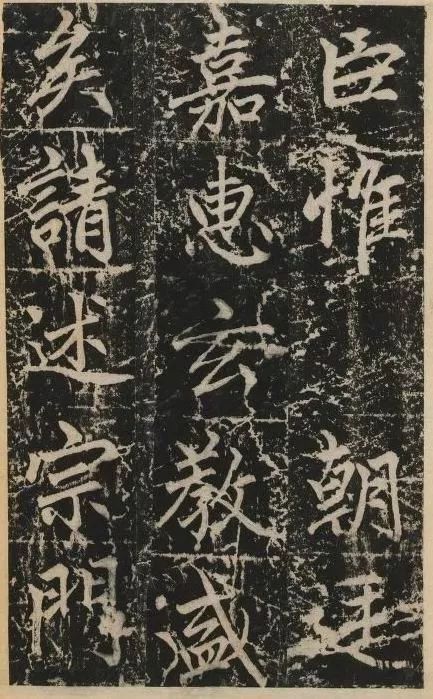 臣惟朝廷
嘉惠玄教盛
矣請述宗門